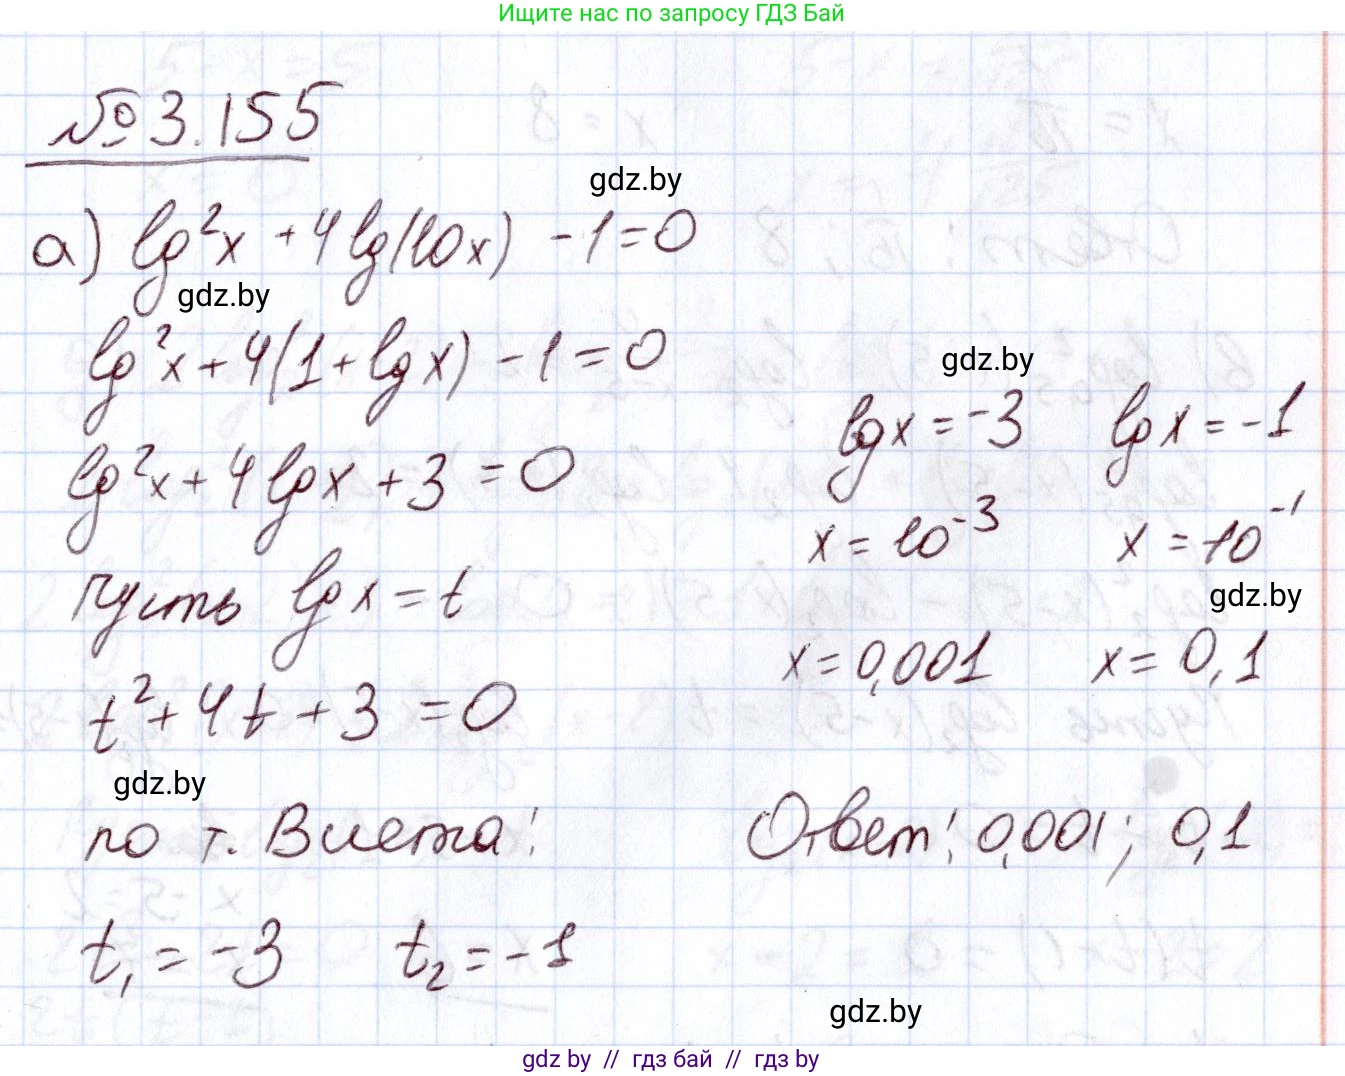 Ищите нас по запросу ГДЗ Бай
№ 3.155
gdz.by
а) lg²x + 4lg(10x) - 1 = 0
gdz.by
lg²x + 4(1 + lgx) - 1 = 0
lg²x + 4lgx + 3 = 0
Пусть lgx = t
t² + 4t + 3 = 0
gdz.by
по т. Виета:
t₁ = -3 t₂ = -1
gdz.by
lgx = -3 lgx = -1
x = 10⁻³ x = 10⁻¹
gdz.by
x = 0,001 x = 0,1
Ответ: 0,001; 0,1
gdz.by
gdz by // гдз бай // гдз by